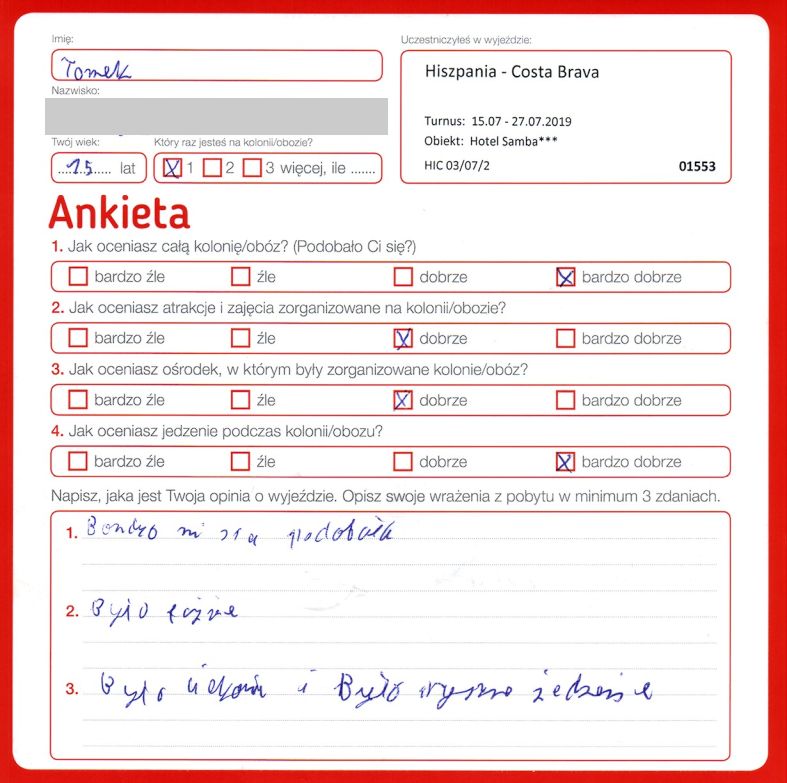 Imię:
Tomek
Nazwisko:
Twój wiek:
15 lat
Który raz jesteś na kolonii/obozie?
1 2 3 więcej, ile .......
Uczestniczyłeś w wyjeździe:
Hiszpania - Costa Brava
Turnus: 15.07 - 27.07.2019
Obiekt: Hotel Samba***
HIC 03/07/2 01553
Ankieta
1. Jak oceniasz całą kolonię/obóz? (Podobało Ci się?)
bardzo źle źle dobrze bardzo dobrze
2. Jak oceniasz atrakcje i zajęcia zorganizowane na kolonii/obozie?
bardzo źle źle dobrze bardzo dobrze
3. Jak oceniasz ośrodek, w którym były zorganizowane kolonie/obóz?
bardzo źle źle dobrze bardzo dobrze
4. Jak oceniasz jedzenie podczas kolonii/obozu?
bardzo źle źle dobrze bardzo dobrze
Napisz, jaka jest Twoja opinia o wyjeździe. Opisz swoje wrażenia z pobytu w minimum 3 zdaniach.
1. Bardzo mi się podobało
2. Było fajnie
3. Było i Było jedzenie